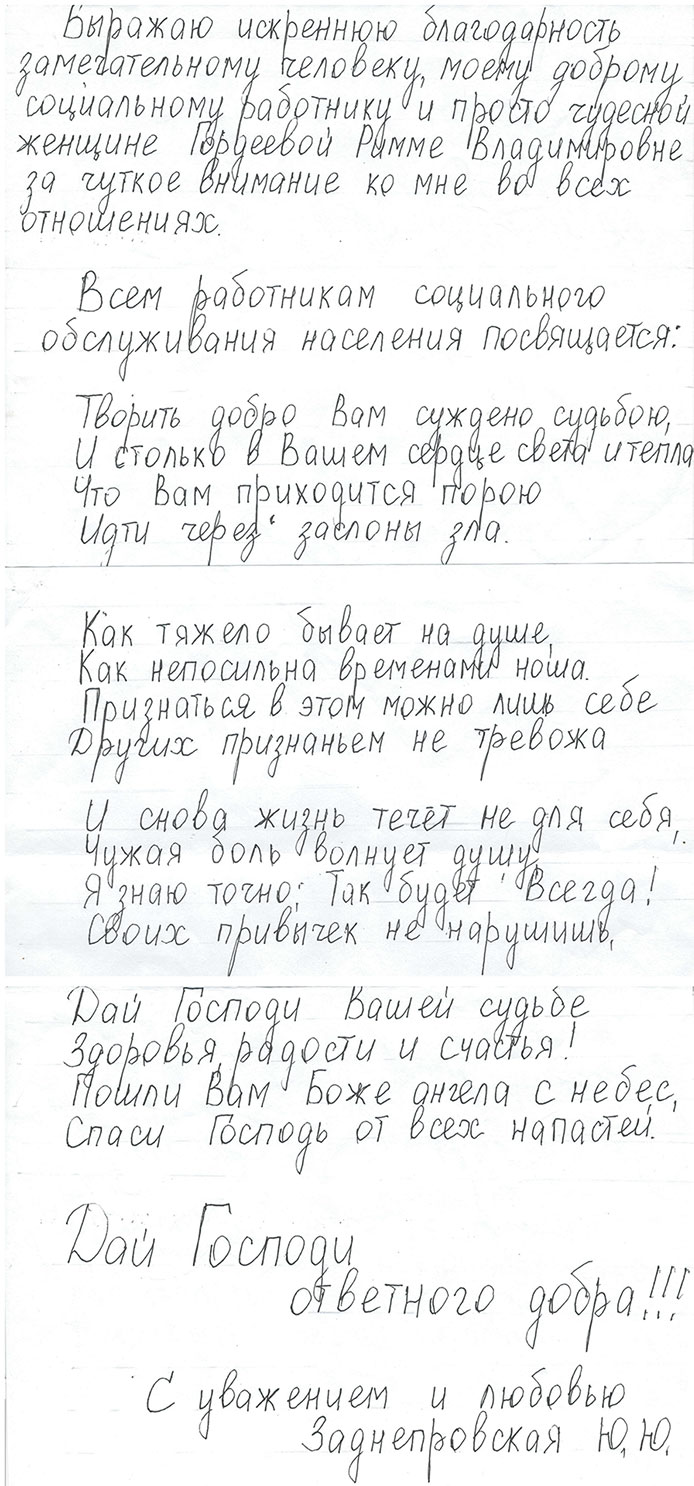 Выражаю искреннюю благодарность
замечательному человеку, моему доброму
социальному работнику и просто чудесной
женщине Гордеевой Римме Владимировне
за чуткое внимание ко мне во всех
отношениях.
Всем работникам социального
обслуживания населения посвящается:
Творить добро Вам суждено судьбою,
И столько в Вашем сердце света и тепла
Что Вам приходится порою
Идти через заслоны зла.
Как тяжело бывает на душе,
Как непосильна временами ноша.
Признаться в этом можно лишь себе
Других признаньем не тревожа
И снова жизнь течёт не для себя,
Чужая боль волнует душу,
Я знаю точно: Так будет Всегда!
Своих привычек не нарушишь,
Дай Господи Вашей судьбе
Здоровья, радости и счастья!
Пошли Вам Боже ангела с небес,
Спаси Господь от всех напастей.
Дай Господи
ответного добра!!!
С уважением и любовью
Заднепровская Ю.Ю.